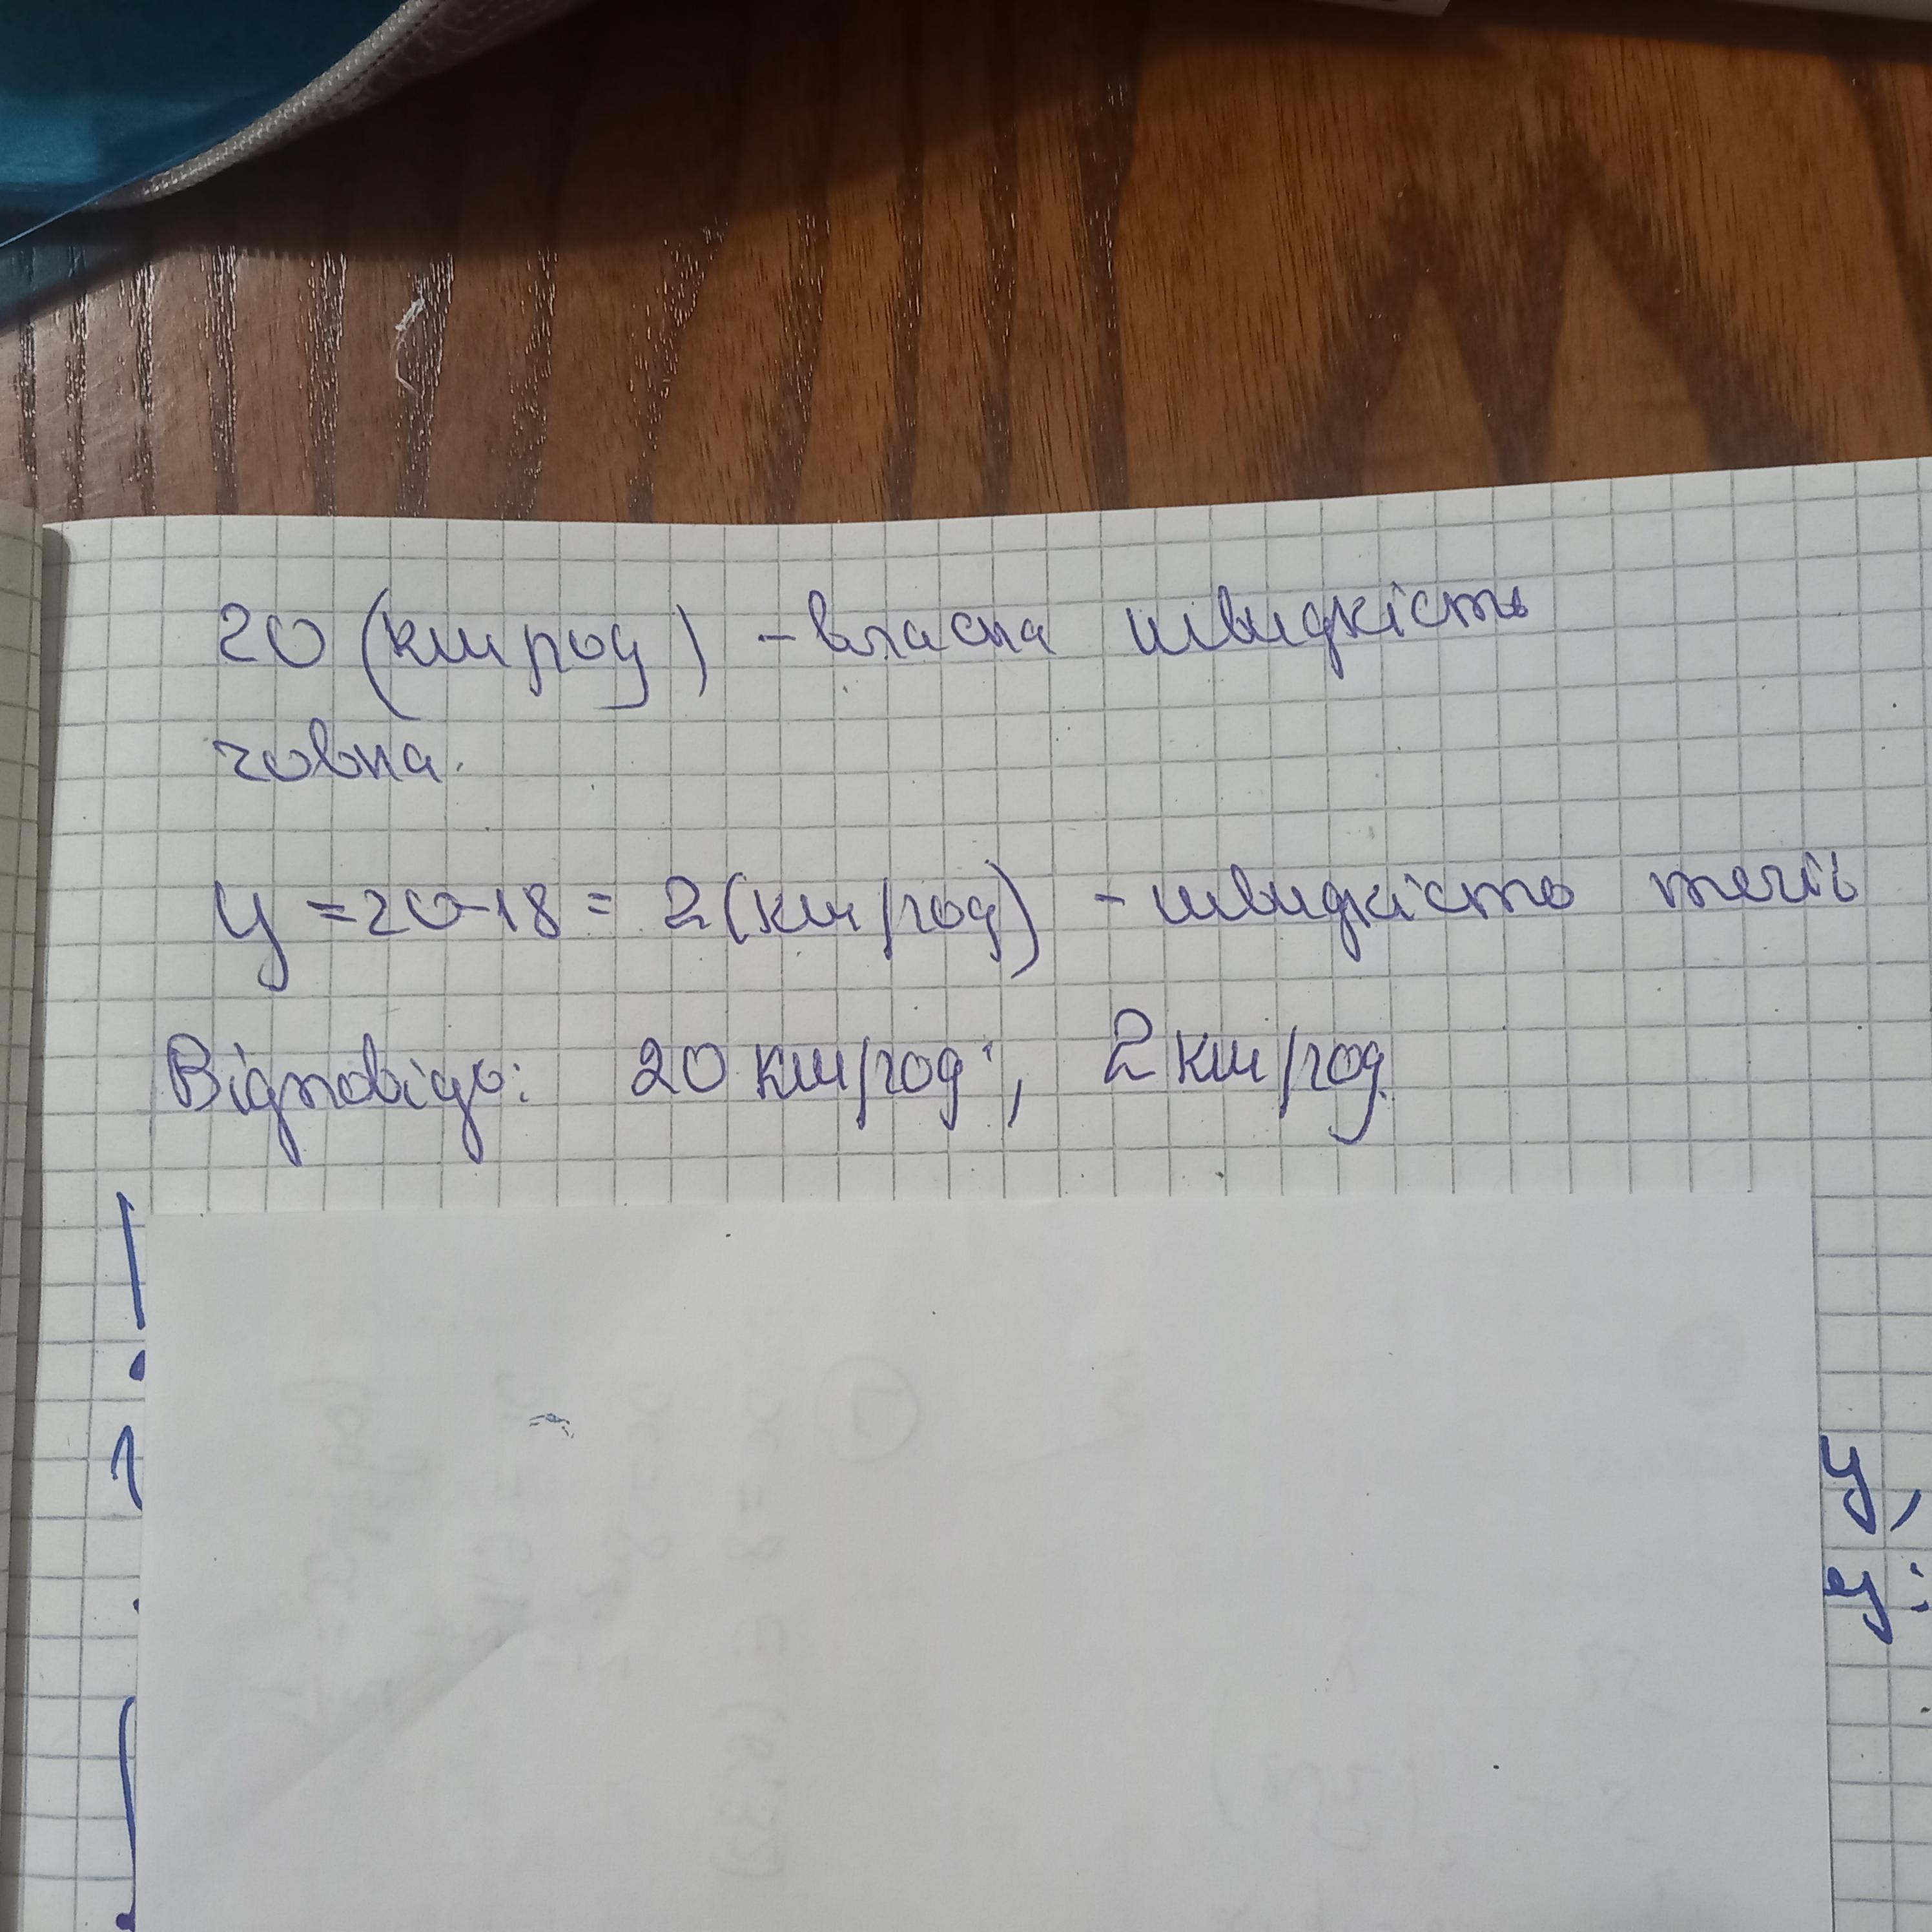 20 (км/год) - власна швидкість
човна.
у = 20-18 = 2 (км/год) - швидкість течії
Відповідь: 20 км/год; 2 км/год.
у,
у;